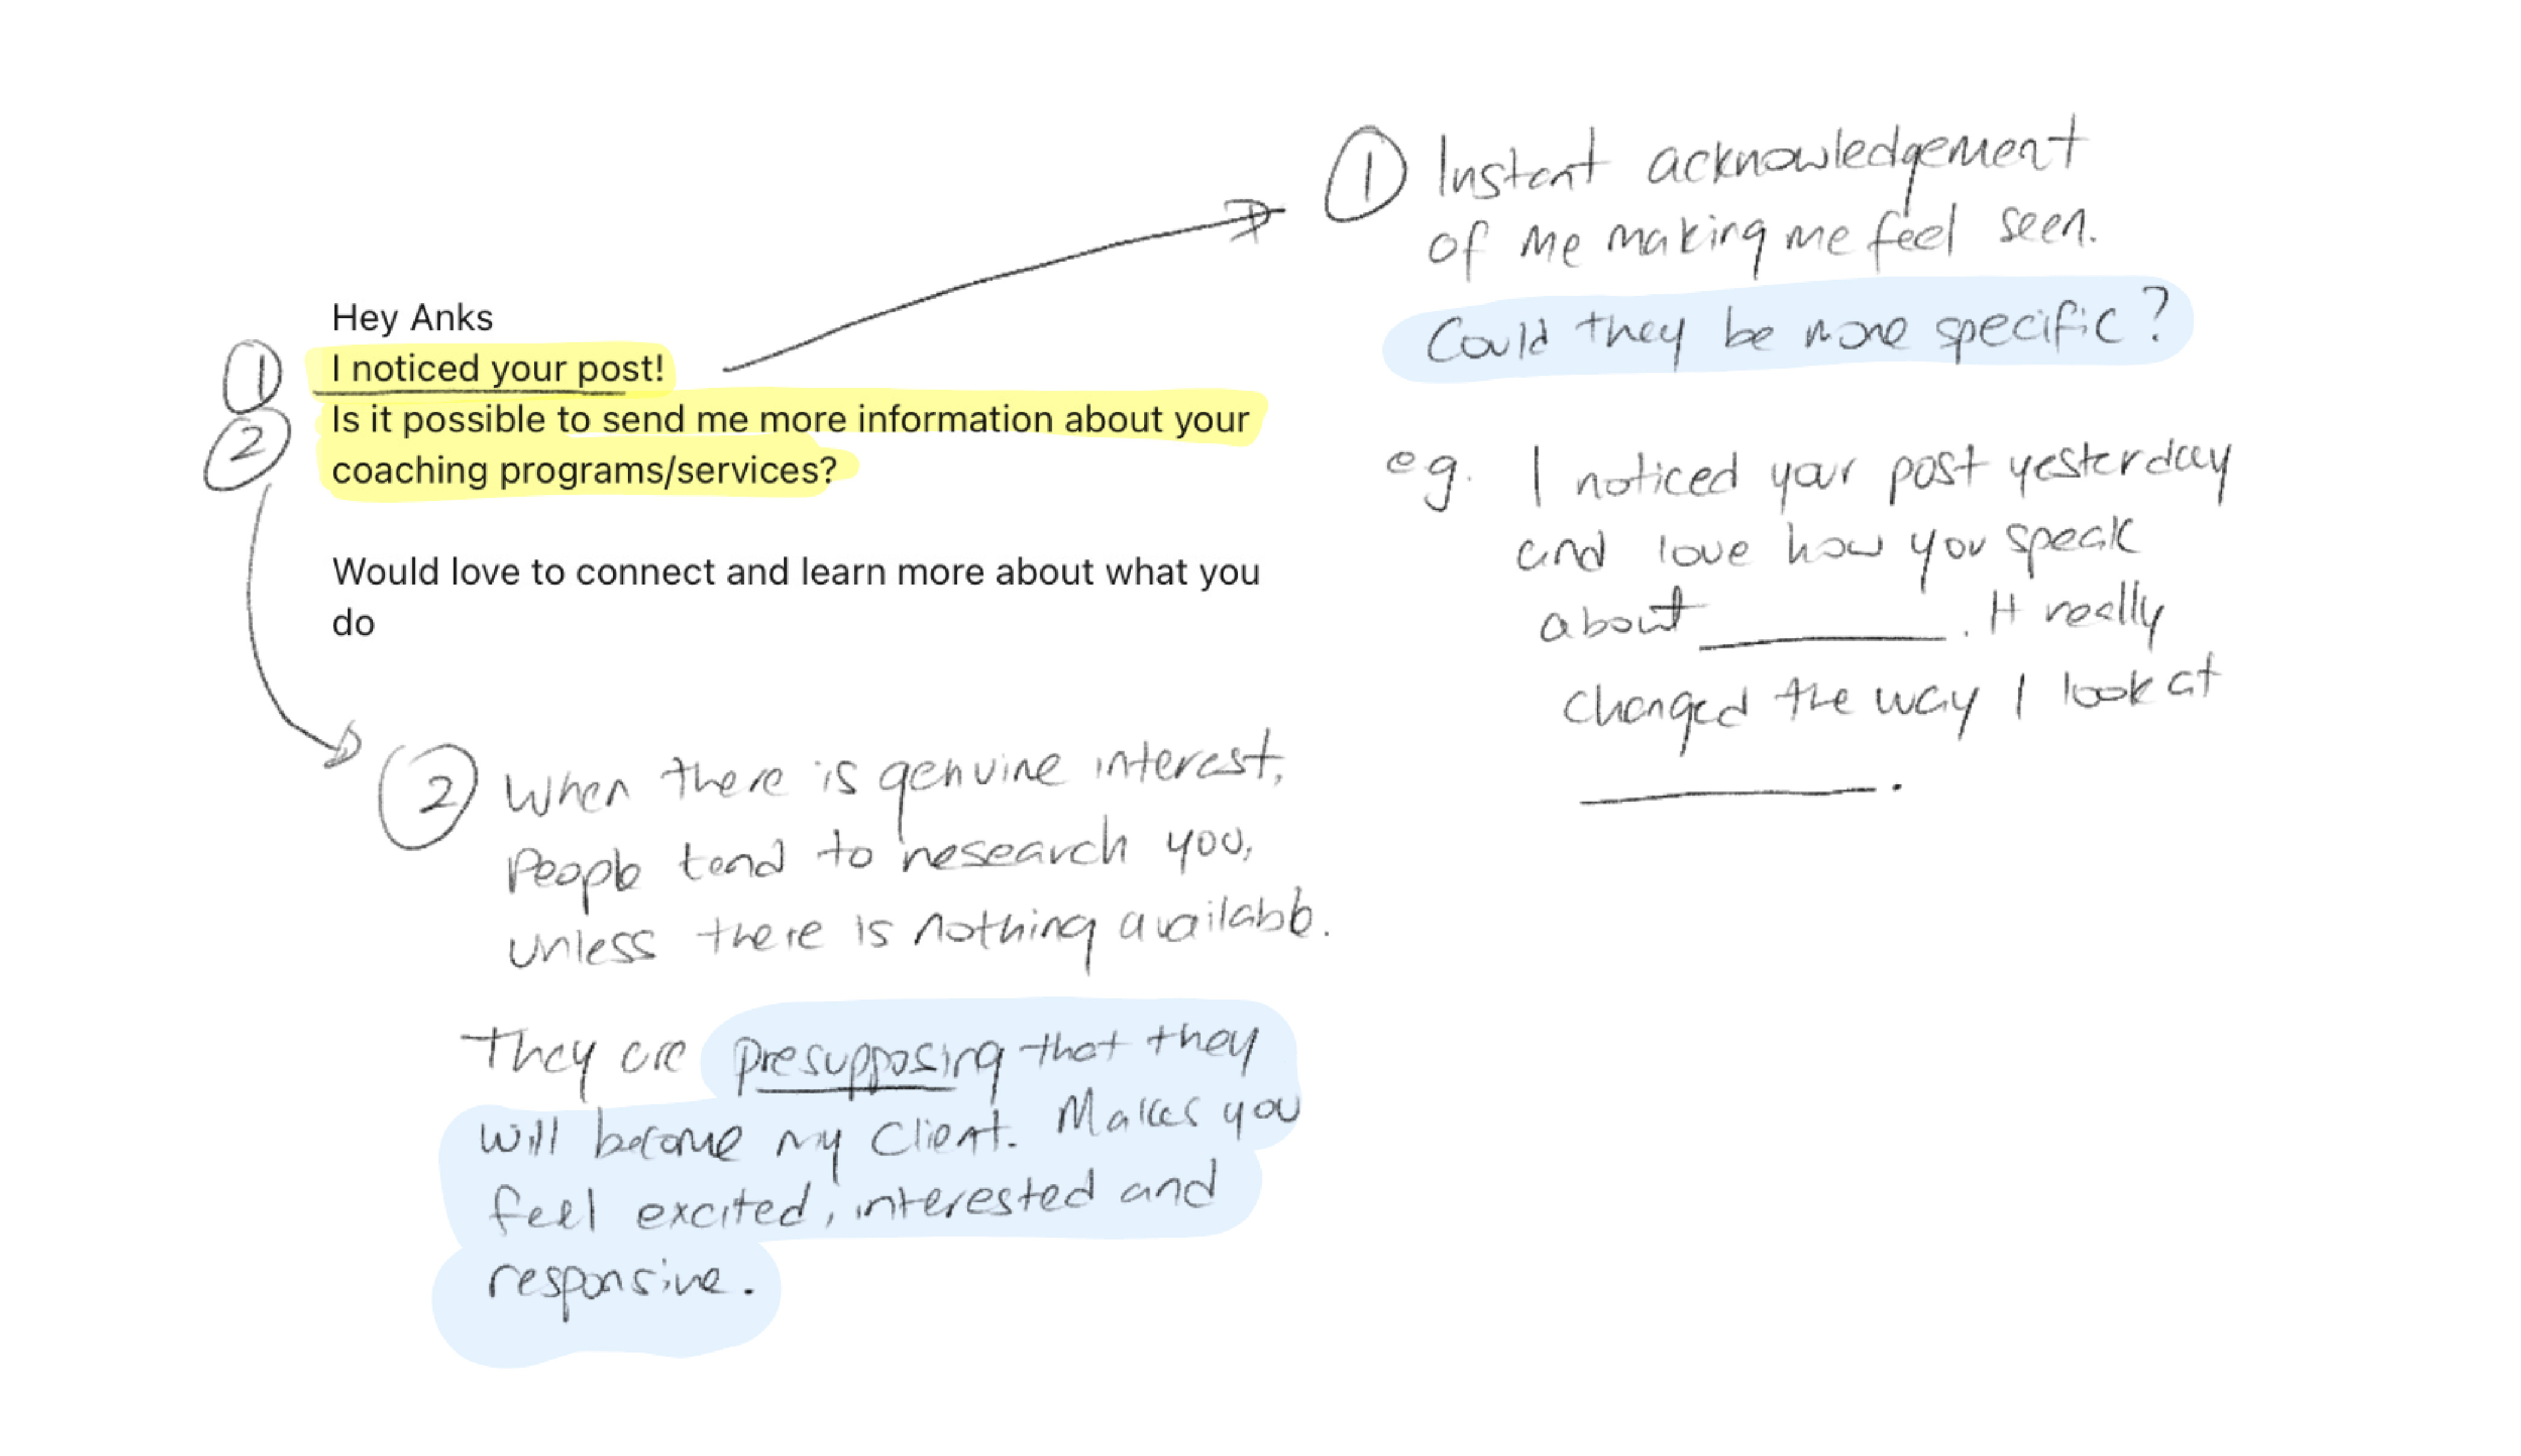 Hey Anks
① I noticed your post!
② Is it possible to send me more information about your
coaching programs/services?
Would love to connect and learn more about what you
do
① Instant acknowledgement
of me making me feel seen.
Could they be more specific?
eg. I noticed your post yesterday
and love how you speak
about ________. It really
changed the way I look at
________.
② When there is genuine interest,
people tend to research you,
unless there is nothing available.
They are presupposing that they
will become my client. Makes you
feel excited, interested and
responsive.